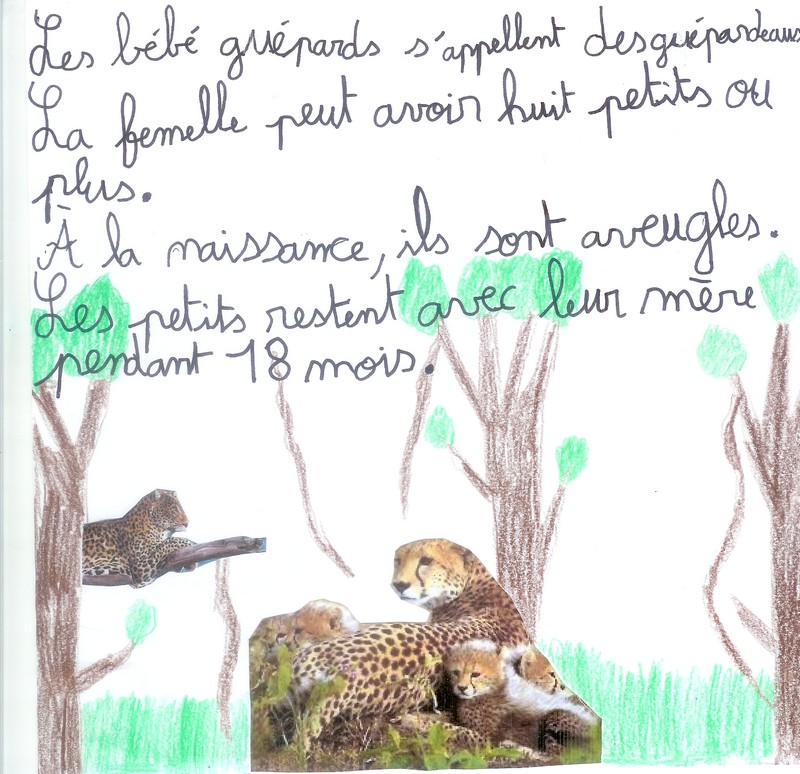 Les bébé guépards s'appellent des guépardeaux
La femelle peut avoir huit petits ou
plus.
À la naissance, ils sont aveugles.
Les petits restent avec leur mère
pendant 18 mois.